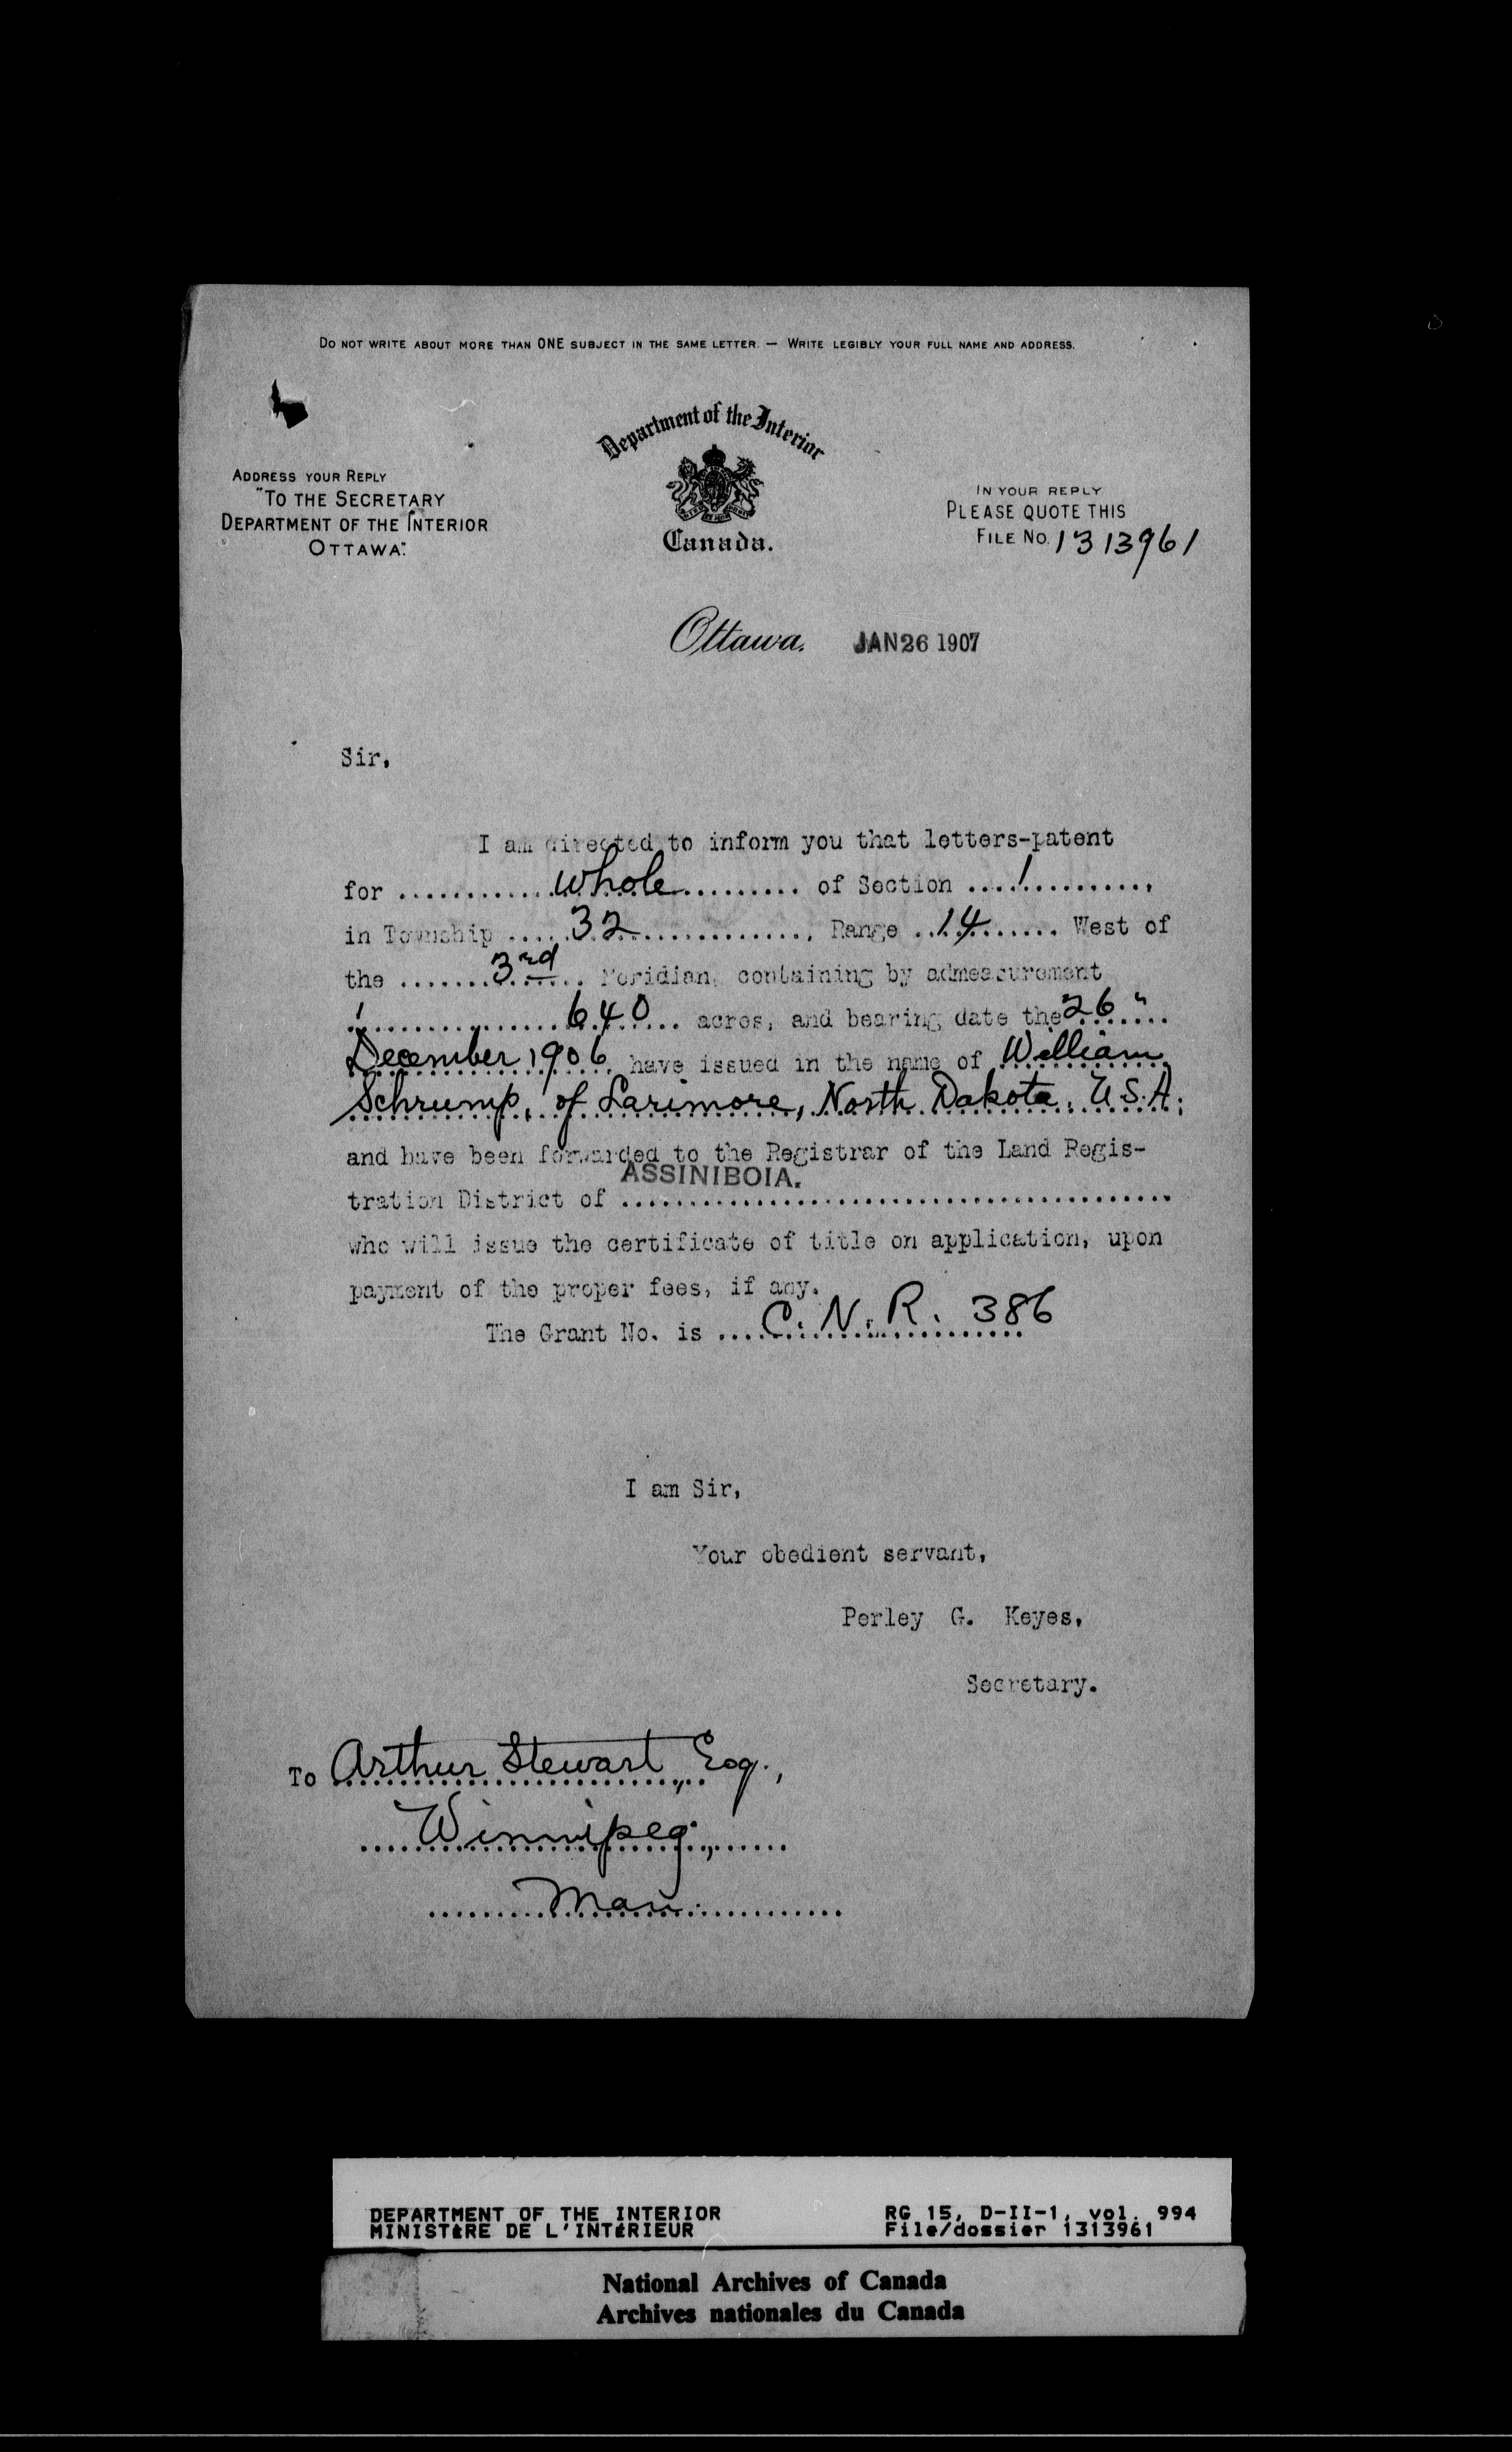 DO NOT WRITE ABOUT MORE THAN ONE SUBJECT IN THE SAME LETTER. — WRITE LEGIBLY YOUR FULL NAME AND ADDRESS.
Department of the Interior
Canada.
ADDRESS YOUR REPLY
"TO THE SECRETARY
DEPARTMENT OF THE INTERIOR
OTTAWA."
IN YOUR REPLY
PLEASE QUOTE THIS
FILE NO. 1313961
Ottawa, JAN 26 1907
Sir,
I am directed to inform you that letters-patent
for ............whole.......... of Section ....1..............,
in Township .....32................., Range ..14........ West of
the .......3rd....... Meridian, containing by admeasurement
.................640....... acres, and bearing date the 26"......
December 1906, have issued in the name of William
Schrump, of Larimore, North Dakota, U.S.A.;
and have been forwarded to the Registrar of the Land Regis-
tration District of ASSINIBOIA. ........................................
who will issue the certificate of title on application, upon
payment of the proper fees, if any.
The Grant No. is ....C.N.R. 386
I am Sir,
Your obedient servant,
Perley G. Keyes,
Secretary.
TO Arthur Stewart, Esq.,
....Winnipeg,......
.........Man.............
DEPARTMENT OF THE INTERIOR
MINISTÈRE DE L'INTÉRIEUR
RG 15, D-II-1, vol. 994
File/dossier 1313961
National Archives of Canada
Archives nationales du Canada